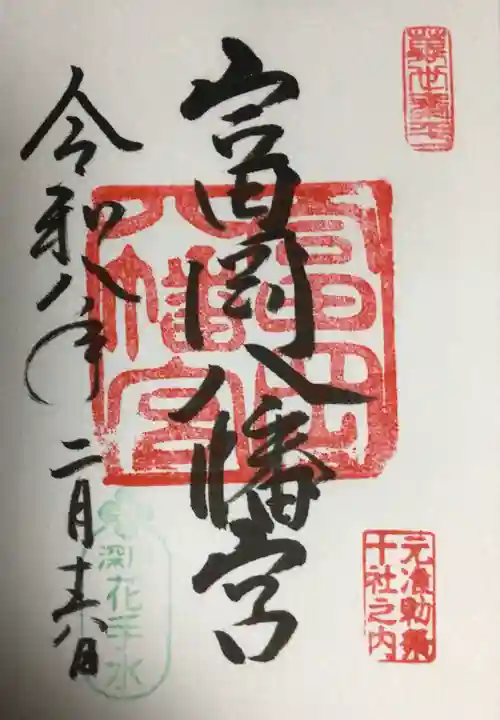 富岡八幡宮
富岡
八幡宮
元准勅祭
十社之内
令和八年 二月十六日
深花手水